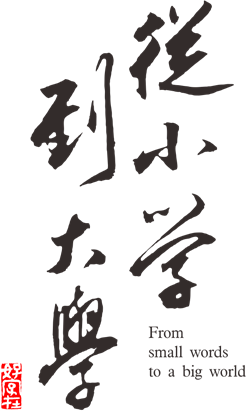 從小学
到大學
From
small words
to a big world
好字社